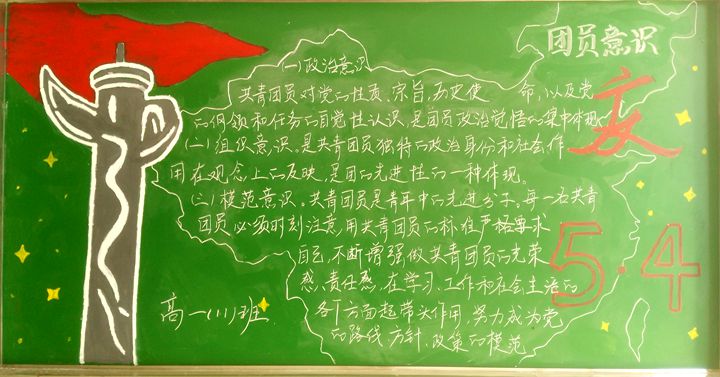 团员意识
(一)政治意识
共青团员对党的性质、宗旨,历史使 命,以及党
的纲领和任务的自觉性认识,是团员政治觉悟的集中体现。
(一)组织意识。是共青团员独特的政治身份和社会作
用在观念上的反映,是团的先进性的一种体现。
(三)模范意识。共青团员是青年中的先进分子。每一名共青
团员必须时刻注意,用共青团员的标准严格要求
自己,不断增强做共青团员的光荣
感,责任感,在学习、工作和社会生活的
各个方面起带头作用,努力成为党
的路线、方针、政策的模范
5·4
高一(11)班